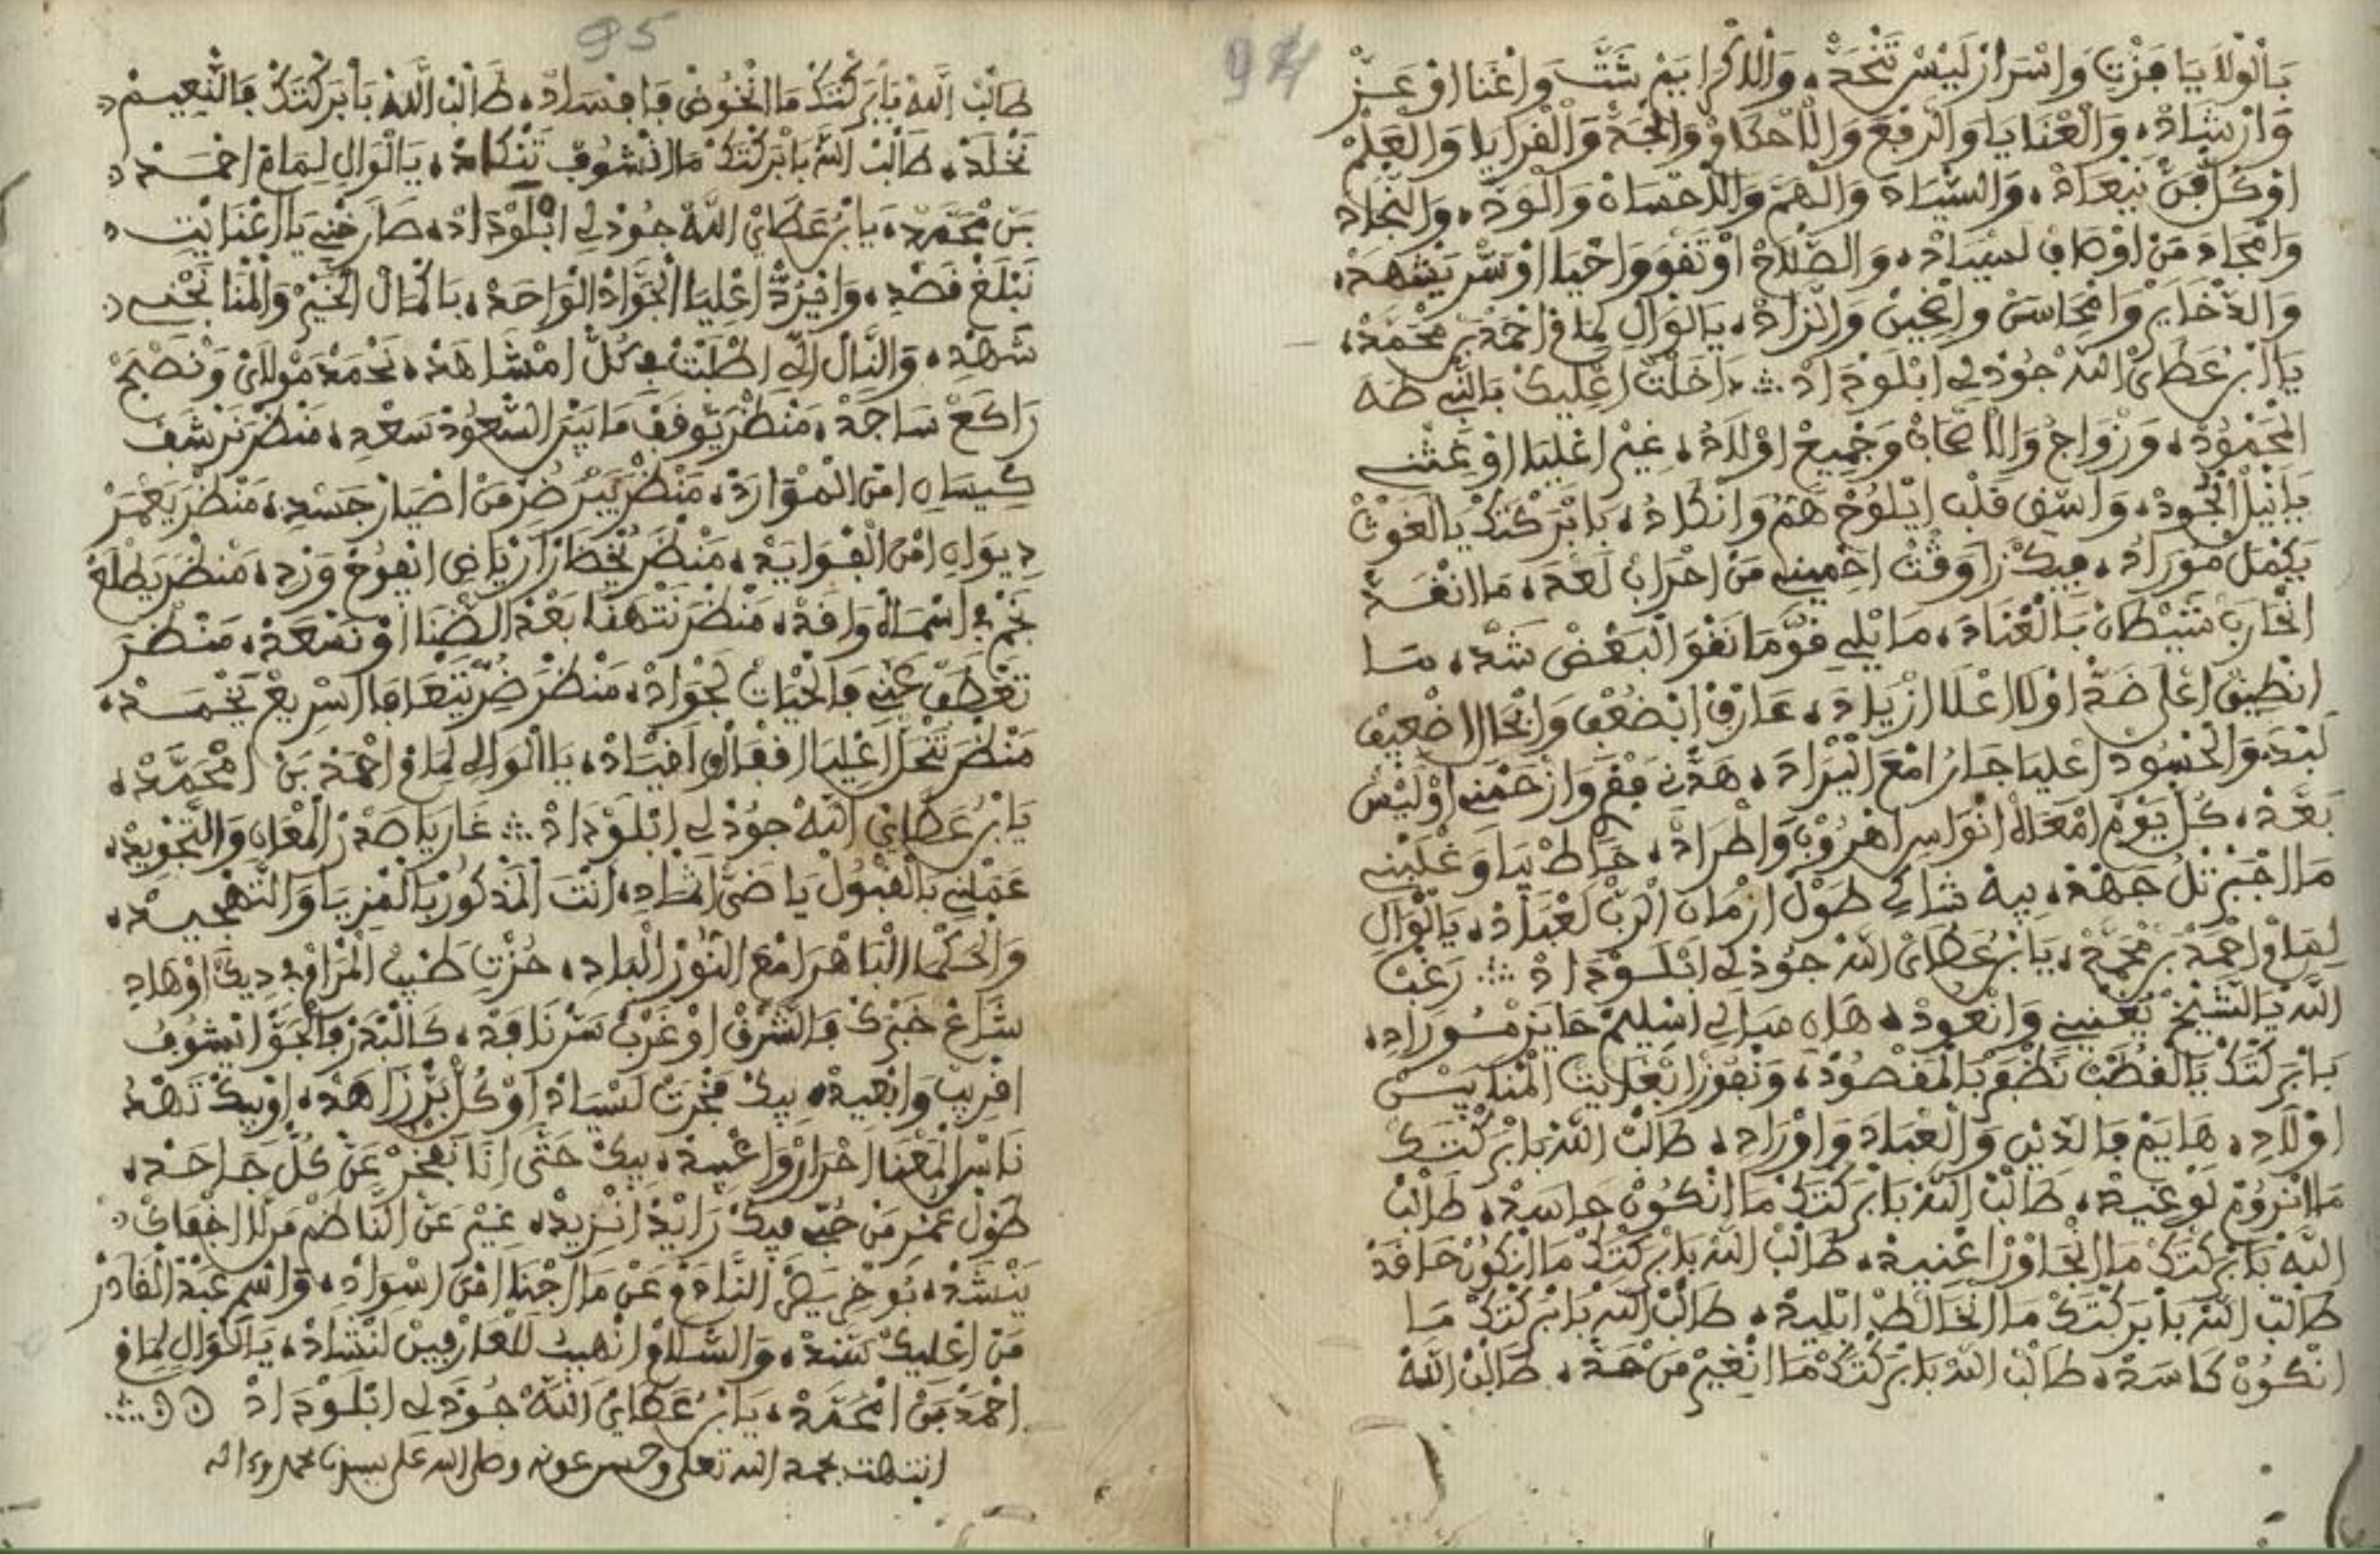 94
بَالْوْلَايَا فَزْتِ وَاسْرَارْ لَيْسْ تَنْحَدْ، وَالذْكْرَا يَمْ شَتَّتْ وَاغْنَا اوْ عَزْ
وَارْشَادْ، وَالْعْنَايَا وَالرْفِعْ وَالْاحكَاوْ وَالْجَدْ وَالْقْرَايَا وَالْعَلْمْ
اوْكُلْ فَنْ يَنْعَادْ، وَالسْيَادَ وَالْهَمَّ وَالْاحْسَانْ وَالْوَدْ، وَالنْجَادَ
وَامْجَادَ مَنْ اوْصَافْ لَسْيَادْ، وَالصْلَاحْ اوْتَقْوَ وَاحْيَا اوْسَرْ يَشْهَدْ،
وَالذْخَايَرْ وَامْحَاسَنْ وَالْحِينْ وَالزَادْ، يَالْوَالِ لِمَامْ احْمَدْ بَنْ مْحَمَّدْ،
يَا ابْرْ عَطَايَ اللهْ جُوذْ لِ ابْلَوْدَادْ ؞ دَخَلْتْ اعْلِيكْ بَالنْبِي طَهَ
الْمَحْمُودْ، وَزْوَاجُ وَالْاصْحَابْ وَجْمِيعْ اوْلَادُ، غِيرْ اعْلِيَا اوْغِثْنِي
يَا نِيلْ الْجُودْ، وَاشْفِ قَلْبِ ايْلُوحْ هَمُّ وَانْكَادُ، بَابْرَكْتَكْ يَا الْغَوْثْ
يَكْمَلْ مَوْرَادُ، فِيكْ رَا وَقْتْ احْمِينِي مَنْ احْرَابْ لَعْدَ، مَا انْقَدْ
انْحَارَبْ شَيْطَانْ بَالْعْنَادَ، مَا يْلِي قُوَّ مَا نَقْوَ الْبَعْضْ شَدَّ، مَا
انْطِيقْ اعْلَى ضَدْ اوْلَا اعْلَا ازْيَادَ، عَارَفْ ابْضُعْفِ وَانْحَالِ اضْعِيفْ
لَبْدَ، وَالْحْسُودْ اعْلِيَا جَارُ امْعَ الْيْرَادَ، هَدْنِي فَقْرِ وَارْحَمْنِي اوْلَيْسْ
بَعْدْ، كُلْ يُومْ امْعَاهْ انْوَاسِ اهْرُوبْ وَاطْرَادْ، خَاطْ بِيَا وَغْلَبْنِي
مَا اجْبَرْتْلُ جَهْدْ، بِيهْ شَاكِ طُولْ ازْمَانِ الْرَبْ لَعْبَادْ، يَالْوَالِ
لِمَامْ احْمَدْ بَرْ مْحَمَّدْ، يَا ابْرْ عَطَايَ اللهْ جُوذْ لِ ابْلَوْدَادْ ؞ رَغْبْ
اللهْ يَالشِيخْ يَعْنِينِي وَانْعُودْ، هَانِ مَبَالِي اسْلِيمْ حَايَزْ مُورَادِ،
بَابْرَكْتَكْ يَالْقُطْبْ نَظْفَرْ بَالْمَقْصُودْ، وَنْفُوزْ ابْغَايَتْ الْمْنَا بِيسْ
اوْلَادِ، هَايَمْ فَالدِينْ وَالْعْبَادَ وَاوْرَادِ، طَالَبْ اللهْ بَابْرَكْتَكْ
مَا انْرُومْ لَوْغِيدْ، طَالَبْ اللهْ بَابْرَكْتَكْ مَا انْكُونْ حَاسَدْ، طَالَبْ
اللهْ بَابْرَكْتَكْ مَا انْجَاوَرْ اعْنِيدْ، طَالَبْ اللهْ بَابْرَكْتَكْ مَا انْكُونْ حَاقَدْ
طَالَبْ اللهْ بَابْرَكْتَكْ مَا انْخَالَطْ ابْلِيدْ، طَالَبْ اللهْ بَابْرَكْتَكْ مَا
انْكُونْ كَاسَدْ، طَالَبْ اللهْ بَابْرَكْتَكْ مَا انْغِيرْ مَنْ حَدْ، طَالَبْ اللهْ
95
طَالَبْ اللهْ بَابْرَكْتَكْ مَا انْخُوضْ فَافْسَادْ، طَالَبْ اللهْ بَابْرَكْتَكْ فَالنْعِيمْ
نَخْلَدْ، طَالَبْ اللهْ بَابْرَكْتَكْ مَا انْشُوفْ تَنْكَادْ، يَالْوَالِ لِمَامْ احْمَدْ
بَنْ مْحَمَّدْ، يَابْرْ عَطَايَ اللهْ جُوذْ لِ ابْلَوْدَادْ، صَارَخْنِي يَا اغْنَايْتِ
نَبْلَغْ قَصْدِ، وَايْرَدْ اعْلِيَا الْجَوَادْ الْوَاحَدْ، بَاكْمَالْ الْخِيرْ وَالْمْنَا نَجْنِي
شَهْدِ، وَالنَالْ الِّي اطْلَبْتْ فِي كُلْ امْشَاهَدْ، نَحْمَدْ مَوْلَايْ وَنْصَبَحْ
رَاكَعْ سَاجَدْ، مَنْطَرْ يَوقَفْ مَا بِينْ السْعُودْ سَعْدِ، مَنْطَرْ نَرْشَفْ
كِيسَانِ امْنْ الْمْوَارَدْ، مَنْطَرْ يَبْرَ ضُرِّ مَنْ اضْيَارْ جَسْدِ، مَنْطَرْ يَعْمَرْ
دِيوَانِ امْنْ الْفْوَايَدْ، مَنْطَرْ تَخْطَارْ ارْيَاضِ انْفُوحْ وَرْدِ، مَنْطَرْ يَطْلَعْ
نَجْمِ فِ اسْمَاهْ وَاقَدْ، مَنْطَرْ نَتْهَنَا بَعْدْ الضْنَا اوْ نَسْعَدْ، مَنْطَرْ
تَعْطَفْ عَنِّي فَالْحْيَاتْ لَجْوَادْ، مَنْطَرْ ضُرِّ يَتْعَافَا اسْرِيعْ يَخْمَدْ،
مَنْطَرْ تَنْحَلْ اعْلِيَا اقْفَالْ افْيَادْ، يَا الْوَالِي لِمَامْ احْمَدْ بَنْ امْحَمَّدْ،
يَابْرْ عَطَايَ اللهْ جُوذْ لِي ابْلَوْدَادْ ؞ غَارَ يَا صَدْرْ الْمْعَانِ وَالتَجْوِيدْ،
عَمَّلْنِي بَالْقْبُولْ يَا ضَيْ اثْمَادِ، انْتَ الْمَذْكُورْ بَالْقْرَايَا وَالتَمْجِيدْ،
وَالْحَكْمَا الْبَاهْرَا مْعَ النُورْ الْبَادِ، حُزْتِ طَبْ الْمْرَامْ فِ دِينَا اوْهَادِ
شَاعْ خَبْرَكْ فَالشَرْقْ اوْغَرْبْ سَرْ نَافَدْ، كَالْبْدَرْ فَالْجَوْ انْشُوفُ
اقْرِيبْ وَابْعِيدْ، بِيكْ فَخْرَتْ لَسْيَادْ اوْكُلْ بَرْ زَاهَدْ، اوْبِيكْ تَهْدَ
نَاسْ الْمْعْنَا احْرَارْ وَاعْبِيدْ، بِيكْ حَتَّى انَا نَفْخَرْ عَنْ كُلْ جَاحَدْ،
طُولْ عَمْرِ مَنْ حُبِّي فِيكْ زَايَدْ انْزِيدْ، غِيرْ عَنْ النَاظَمْ مَنْ لَا اخْفَاكْ
يَنْشَدْ، بُوخْرِيصْ النَادَمْ عَنْ مَا اجْنَا امْنْ اسْوَادْ، وَاسْمِ عَبْدْ الْقَادَرْ
مَنْ اعْلِيكْ يَسْنَدْ، وَالسْلَامْ انْهِيبُ لَلْعَارْفِينْ لَنْشَادْ، يَالْوَالِ لِمَامْ
احْمَدْ بَنْ امْحَمَّدْ، يَابْرْ عَطَايَ اللهْ جُوذْ لِ ابْلَوْدَادْ ؞
انتهت بحمد الله تعلى وحسن عونه وصلى الله على سيدنا محمد وءاله